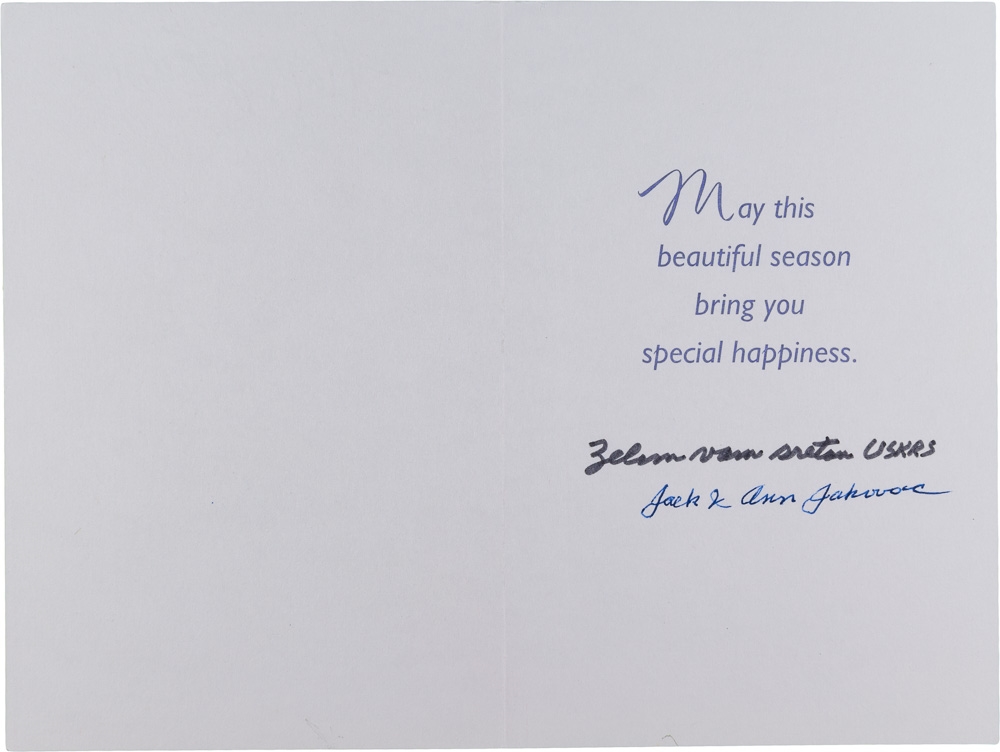 May this
beautiful season
bring you
special happiness.
Zelim vam sretan USKRS
Jack & Ann Jakovac